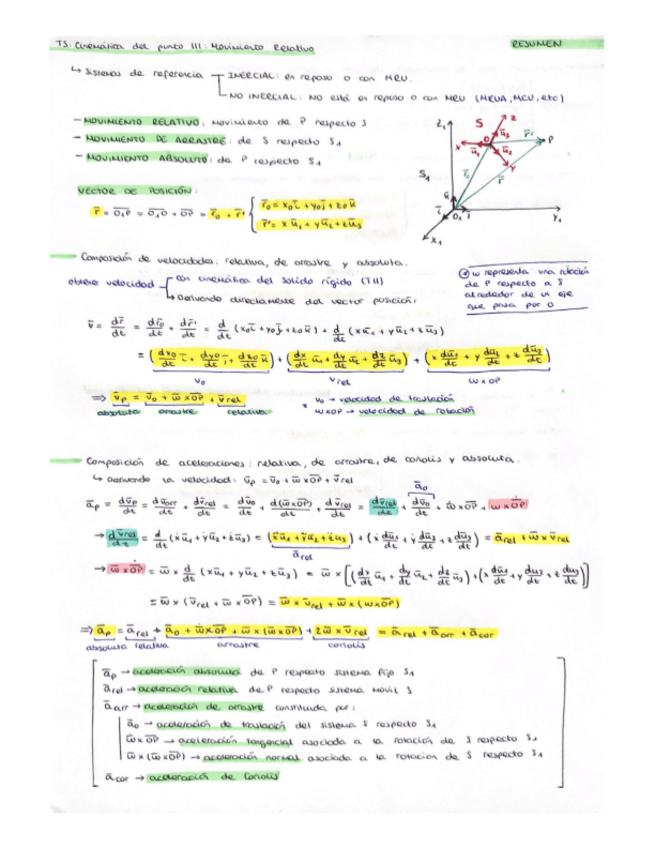 T5: Cinemática del punto III: Movimiento Relativo
RESUMEN
↳ Sistemas de referencia
INERCIAL: en reposo o con MRU.
NO INERCIAL: NO está en reposo o con MRU (MRUA, MCU, etc)
- MOVIMIENTO RELATIVO: Movimiento de P respecto S
- MOVIMIENTO DE ARRASTRE: de S respecto S₁
- MOVIMIENTO ABSOLUTO: de P respecto S₁
VECTOR DE POSICIÓN:
r̄ = O₁P = O₁O + OP = r̄₀ + r̄'
r̄₀ = x₀ī + y₀j̄ + z₀k̄
r̄' = x ū₁ + y ū₂ + z ū₃
Z₁ S Z ū₃ O r̄' P
X ū₁ ū₂ Y
S₁ r̄₀ r̄
k̄ ī O₁ j̄ Y₁
X₁
Composición de velocidades: relativa, de arrastre y absoluta.
obtener velocidad
con cinemática del sólido rígido (T11)
Derivando directamente del vector posición:
ω representa una rotación
de P respecto a S
alrededor de un eje
que pasa por O
v̄ = dr̄/dt = dr̄₀/dt + dr̄'/dt = d/dt (x₀ī + y₀j̄ + z₀k̄) + d/dt (xū₁ + yū₂ + zū₃)
= (dx₀/dt ī + dy₀/dt j̄ + dz₀/dt k̄) + (dx/dt ū₁ + dy/dt ū₂ + dz/dt ū₃) + (x dū₁/dt + y dū₂/dt + z dū₃/dt)
v₀ v rel ω x OP
⇒ v̄p = v̄₀ + ω̄ x OP + v̄rel
absoluta arrastre relativa
v₀ → velocidad de traslación
ω x OP → velocidad de rotación
Composición de aceleraciones: relativa, de arrastre, de coriolis y absoluta.
↳ Derivando la velocidad: v̄p = v̄₀ + ω̄ x OP + v̄rel
ā₀
āp = dv̄p/dt = dv̄arr/dt + dv̄rel/dt = dv̄₀/dt + d(ω̄xOP)/dt + dv̄rel/dt = dv̄rel/dt + dv̄₀/dt + ω̇ x OP + ω x OṖ
→ dv̄rel/dt = d/dt (ẋū₁ + ẏū₂ + żū₃) = (ẍū₁ + ÿū₂ + z̈ū₃) + (ẋ dū₁/dt + ẏ dū₂/dt + ż dū₃/dt) = ārel + ω̄ x v̄rel
ā rel
→ ω̄ x OṖ = ω̄ x d/dt (xū₁ + yū₂ + zū₃) = ω̄ x [(dx/dt ū₁ + dy/dt ū₂ + dz/dt ū₃) + (x dū₁/dt + y dū₂/dt + z dū₃/dt)]
= ω̄ x (v̄rel + ω̄ x OP) = ω̄ x v̄rel + ω̄ x (ωxOP)
⇒ āp = ārel + ā₀ + ω̇ x OP + ω̄ x (ω̄ x OP) + 2ω̄ x v̄rel = ārel + āarr + ācor
absoluta relativa arrastre coriolis
āp → aceleración absoluta de P respecto sistema fijo S₁
ārel → aceleración relativa de P respecto sistema móvil S
āarr → aceleración de arrastre constituida por:
ā₀ → aceleración de traslación del sistema S respecto S₁
ω̇ x OP → aceleración tangencial asociada a la rotación de S respecto S₁
ω̄ x (ω̄ x OP) → aceleración normal asociada a la rotación de S respecto S₁
ācor → aceleración de Coriolis